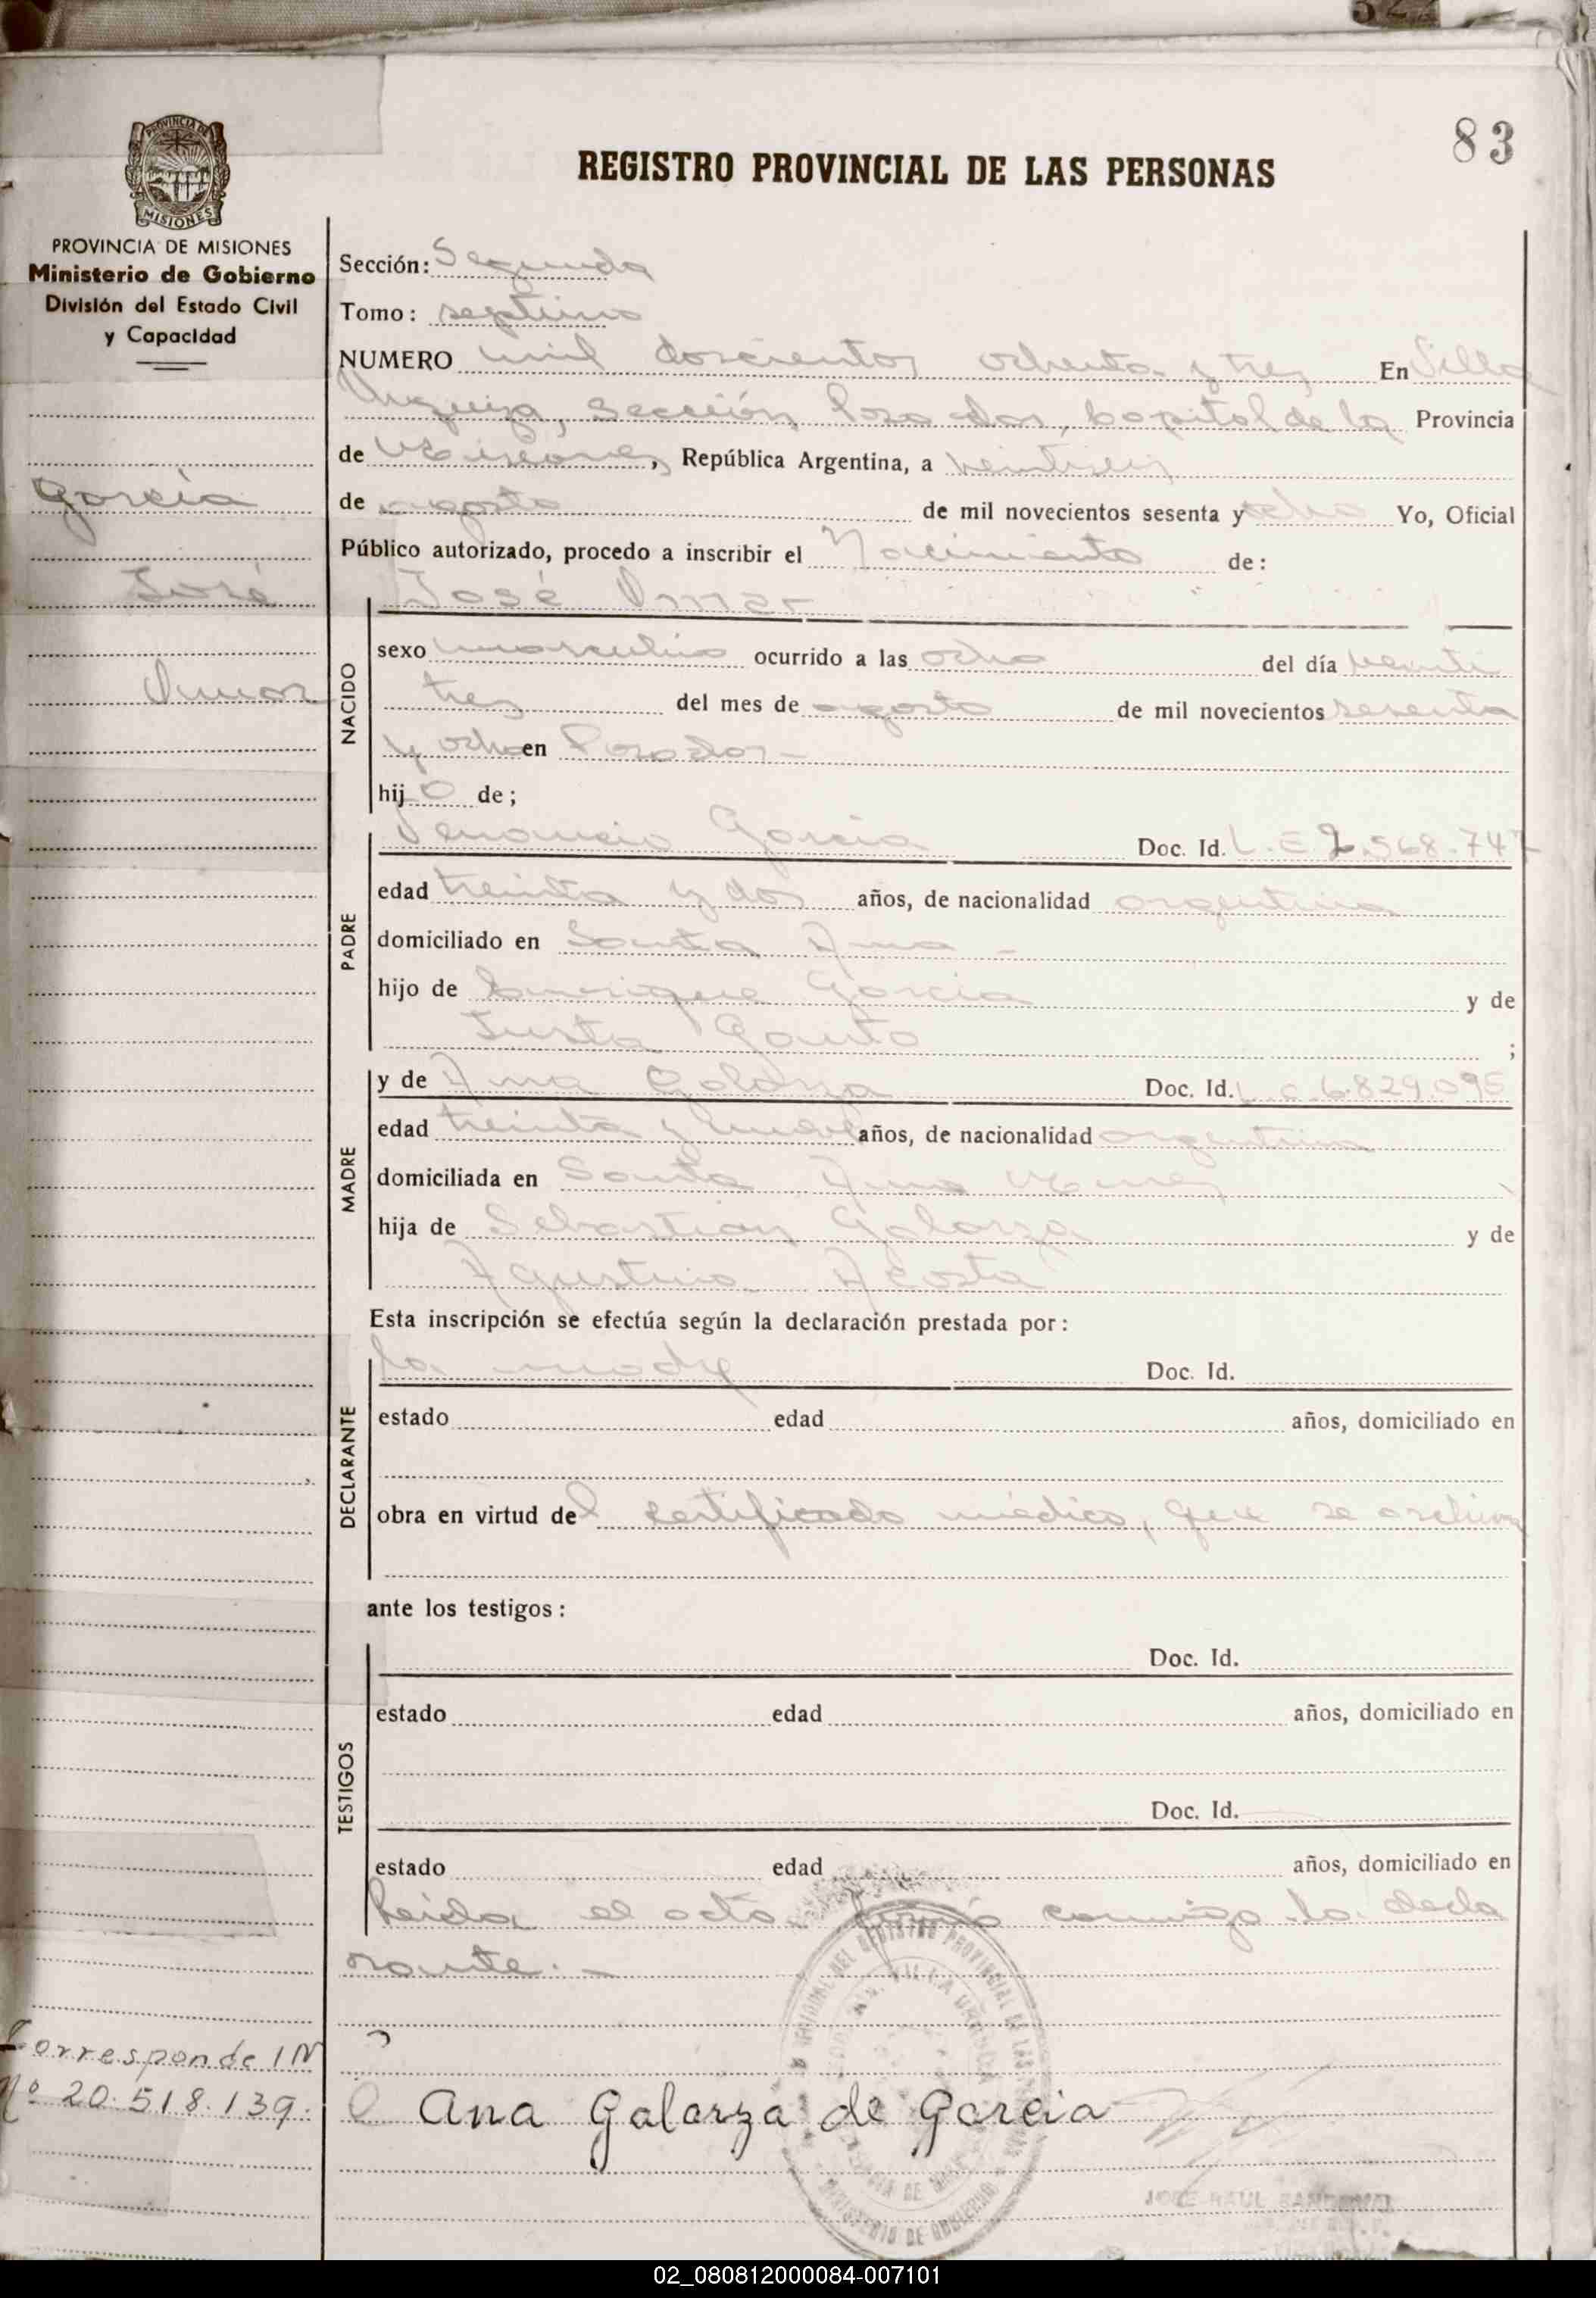 83
REGISTRO PROVINCIAL DE LAS PERSONAS
PROVINCIA DE
MISIONES
PROVINCIA DE MISIONES
Ministerio de Gobierno
División del Estado Civil
y Capacidad
García
José
Omar
Sección: Segunda
Tomo: septimo
NUMERO mil doscientos ochenta y tres En Villa
Urquiza, sección Posadas, Capital de la Provincia
de Misiones, República Argentina, a veintiseis
de agosto de mil novecientos sesenta y ocho Yo, Oficial
Público autorizado, procedo a inscribir el Nacimiento de:
José Omar
NACIDO
sexo masculino ocurrido a las ocho del día veinti
tres del mes de agosto de mil novecientos sesenta
y ocho en Posadas-
hijo de;
PADRE
Venancio García Doc. Id. L.E 2.568.747
edad treinta y dos años, de nacionalidad argentina
domiciliado en Santa Ana -
hijo de Enrique García y de
Justa Gauto ;
MADRE
y de Ana Galarza Doc. Id. L.C 6.829.095
edad treinta y nueve años, de nacionalidad argentina
domiciliada en Santa Ana Mnes
hija de Sebastian Galarza y de
Agustina Acosta
Esta inscripción se efectúa según la declaración prestada por:
DECLARANTE
la madre Doc. Id.
estado edad años, domiciliado en
obra en virtud del certificado médico, que se archiva
ante los testigos:
TESTIGOS
Doc. Id.
estado edad años, domiciliado en
Doc. Id.
estado edad años, domiciliado en
Leida el acta firmó conmigo la decla
rante. -
Corresponde IN
Nº 20.518.139.
Ana Galarza de Garcia
JOSE RAUL
02_080812000084-007101